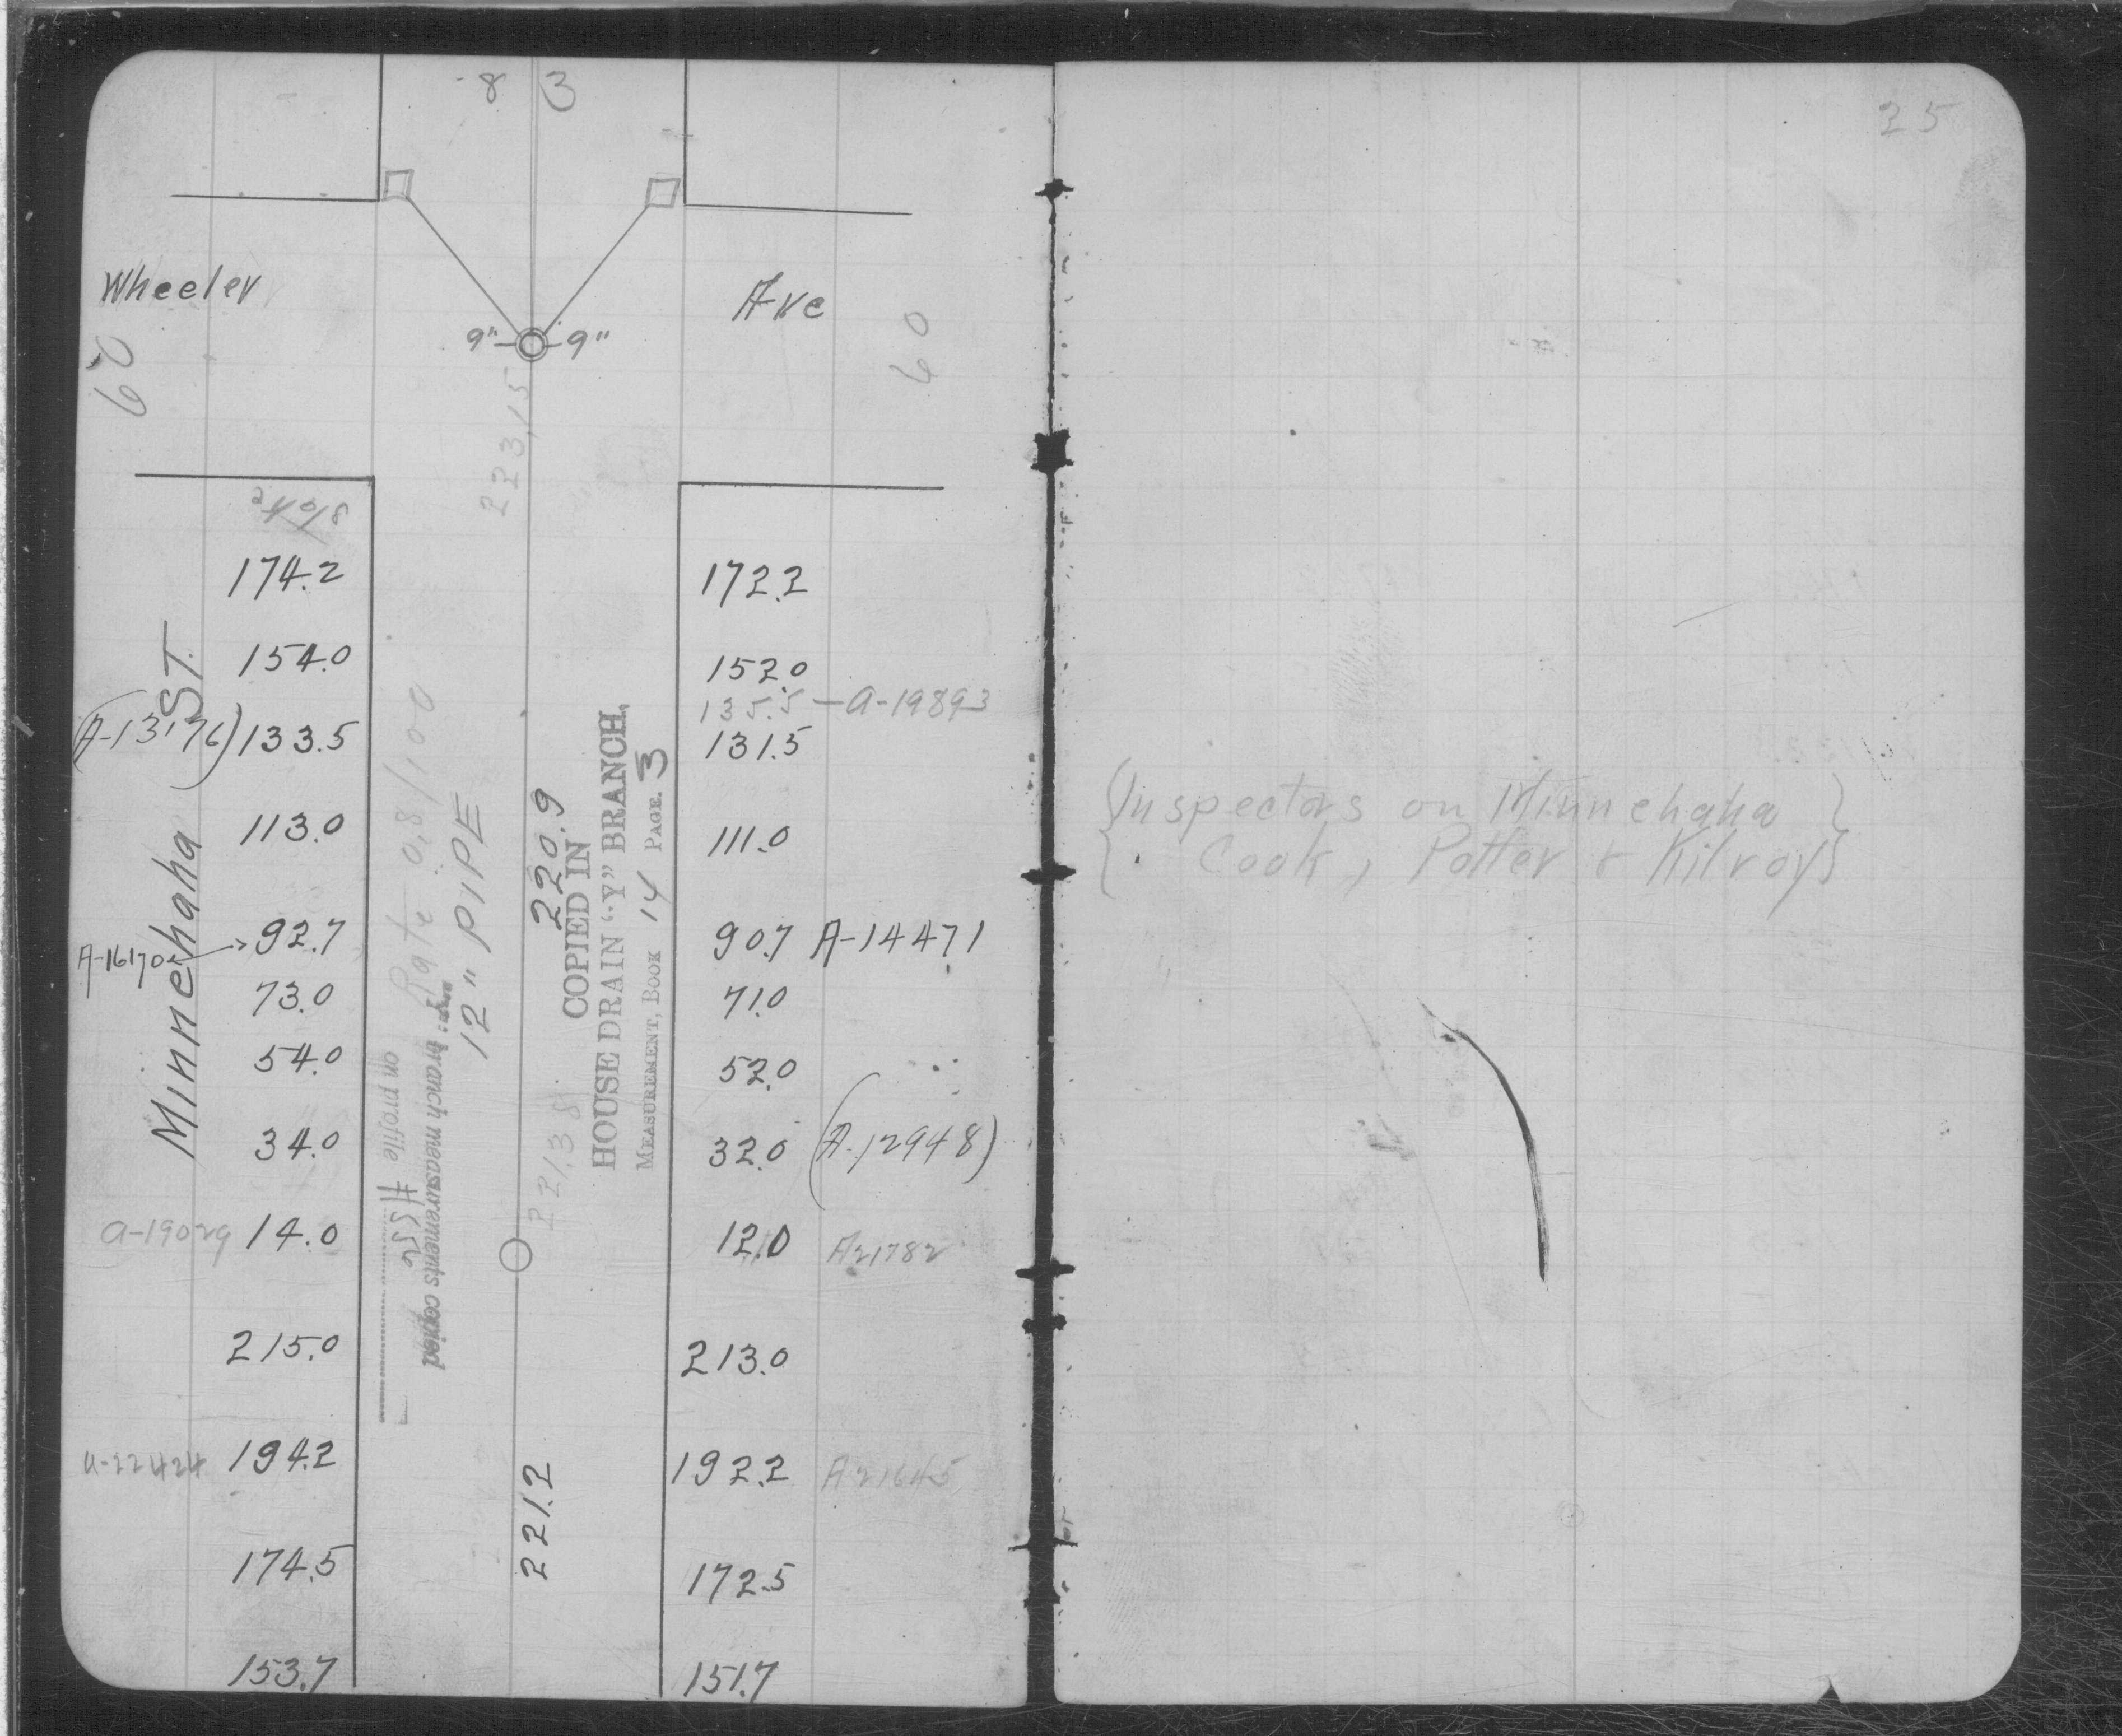 8 3
25
Wheeler Ave
60 60
9" 9"
223.15
174.2 172.2
154.0 152.0
135.5 — A-19893
(A-13176) 133.5 131.5
113.0 111.0
A-16170 → 92.7 90.7 A-14471
73.0 71.0
54.0 52.0
34.0 32.0 (A-12948)
A-19029 14.0 12.0 A21782
215.0 213.0
A-22424 194.2 192.2 A21645
174.5 172.5
153.7 151.7
Minnehaha ST
Rate 0.8/100
12" PIPE
branch measurements copied
on profile
220.9
COPIED IN
HOUSE DRAIN "Y" BRANCH,
MEASUREMENT, BOOK 14 PAGE. 3
221.38
221.2
{Inspectors on Minnehaha}
{Cook, Potter & Kilroy}